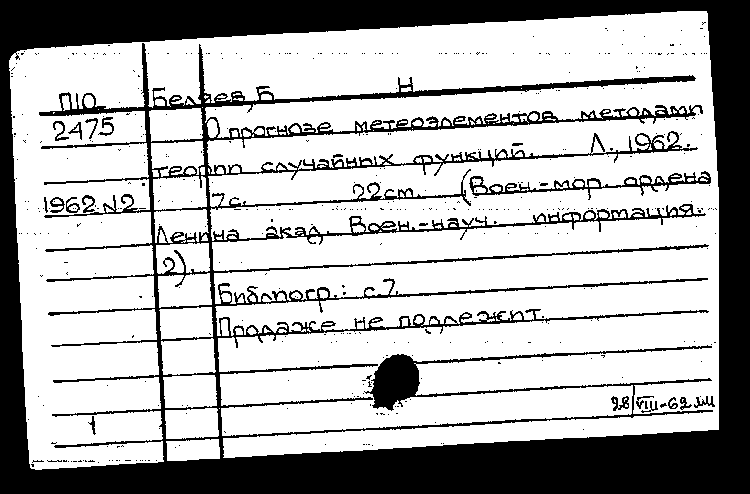 П10 Беляев, Б Н
2475 О прогнозе метеоэлементов методами
теории случайных функций. Л., 1962.
1962 N2 7 с. 22 ст. (Воен.-мор. ордена
Ленина акад. Воен.-науч. информация.
2).
Библиогр.: с. 7.
Продаже не подлежит.
28/VIII-62
1